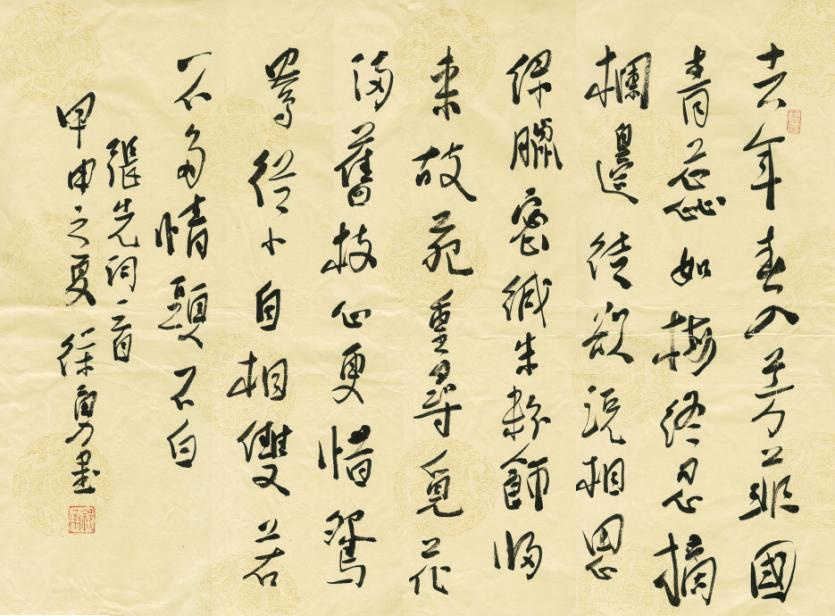 去年春入芳菲國
青蕊如梅終忍摘
欄邊徒欲説相思
綠臘密緘朱粉飾歸
來故苑重尋覓花
滿舊枝心更惜鴛
鴦從小自相雙若
不多情頭不白
張先詞一首
甲申之夏 徐勇書